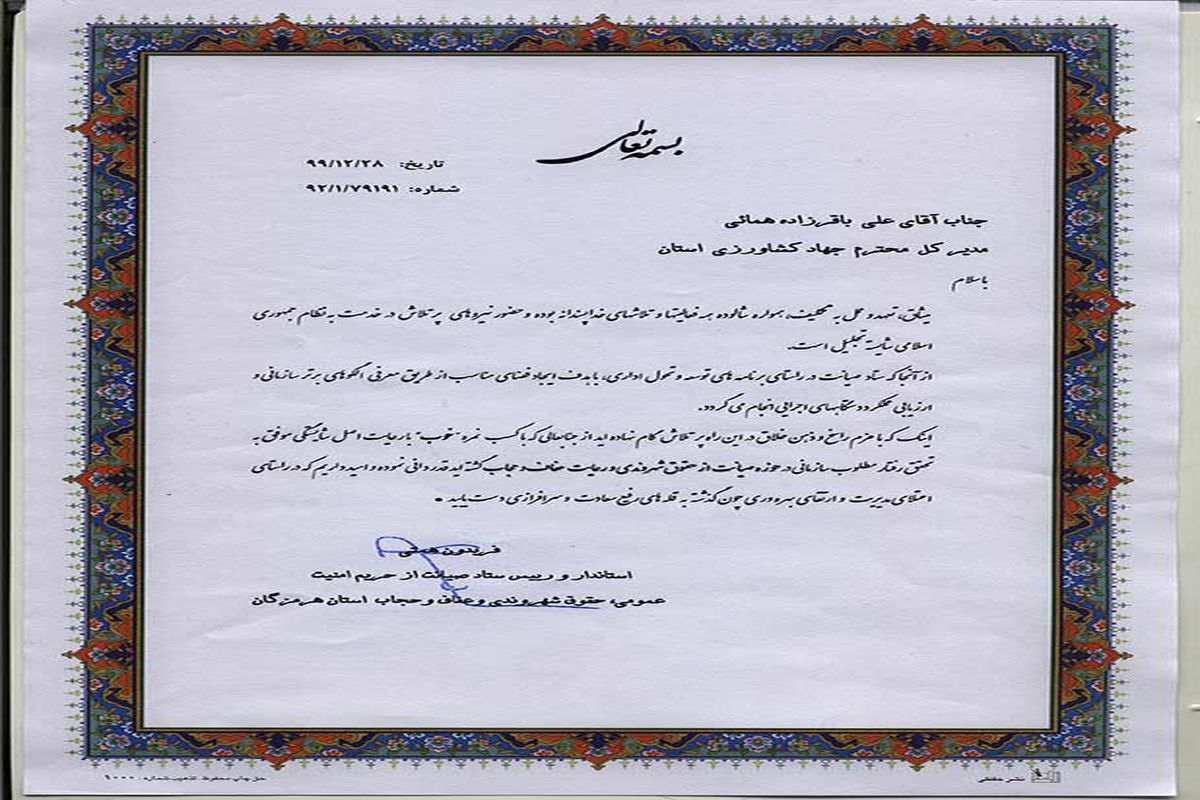 بسمه تعالی
تاریخ: ۹۹/۱۲/۲۸
شماره: ۹۲/۱/۷۹۱۹۱
جناب آقای علی باقرزاده همائی
مدیر کل محترم جهاد کشاورزی استان
باسلام
میثاق، تعهد و عمل به تکلیف، همواره شالوده همه فعالیتها و تلاشهای خداپسندانه بوده و حضور نیروهای پر تلاش در خدمت به نظام جمهوری
اسلامی شایسته تجلیل است.
از آنجا که ستاد صیانت در راستای برنامه های توسعه و تحول اداری، با هدف ایجاد فضای مناسب از طریق معرفی الگوهای برتر سازمانی و
ارزیابی عملکرد دستگاههای اجرایی انجام می گردد.
اینک که با عزم راسخ و ذهن خلاق در این راه پر تلاش گام نهاده اید از جنابعالی که با کسب نمره "خوب" با رعایت اصل شایستگی موفق به
تحقق رفتار مطلوب سازمانی در حوزه صیانت از حقوق شهروندی و رعایت عفاف و حجاب گشته اید قدردانی نموده و امیدواریم که در راستای
اعتلای مدیریت و ارتقای بهره وری چون گذشته به قله های رفیع سعادت و سرافرازی دست یابید .
فریدون همتی
استاندار و رییس ستاد صیانت از حریم امنیت
عمومی، حقوق شهروندی و عفاف و حجاب استان هرمزگان
نشر حقیقی
حق چاپ محفوظ تذهیب شماره: ۱۰۰۰